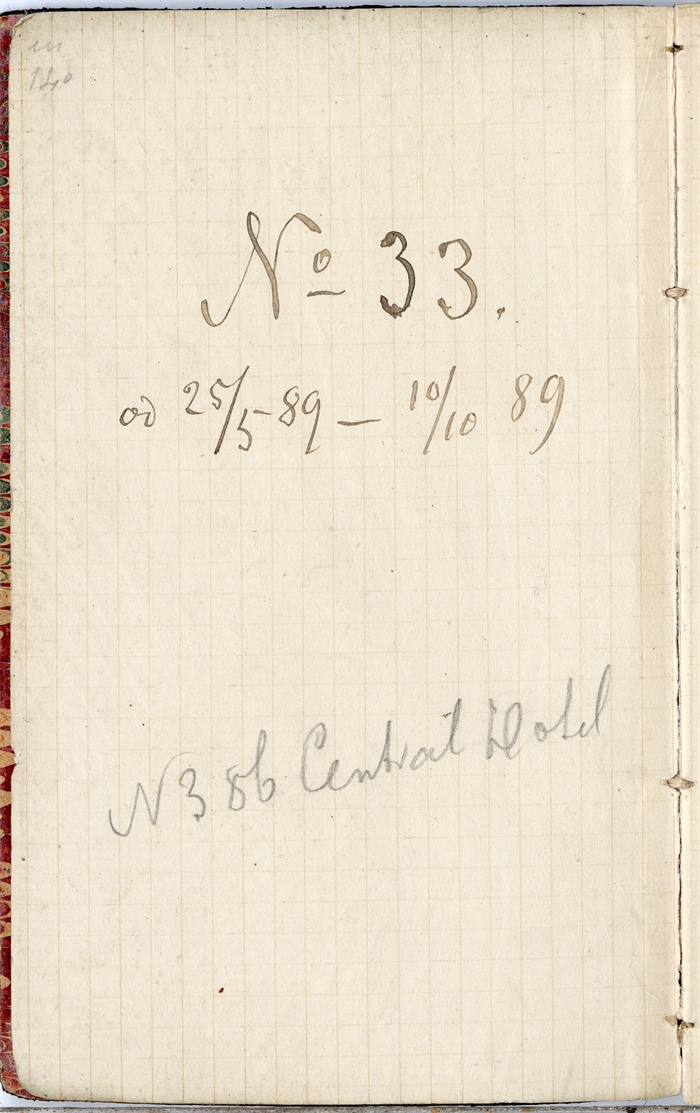 140
No 33.
od 25/5 89 — 10/10 89
N 386 Central Hotel